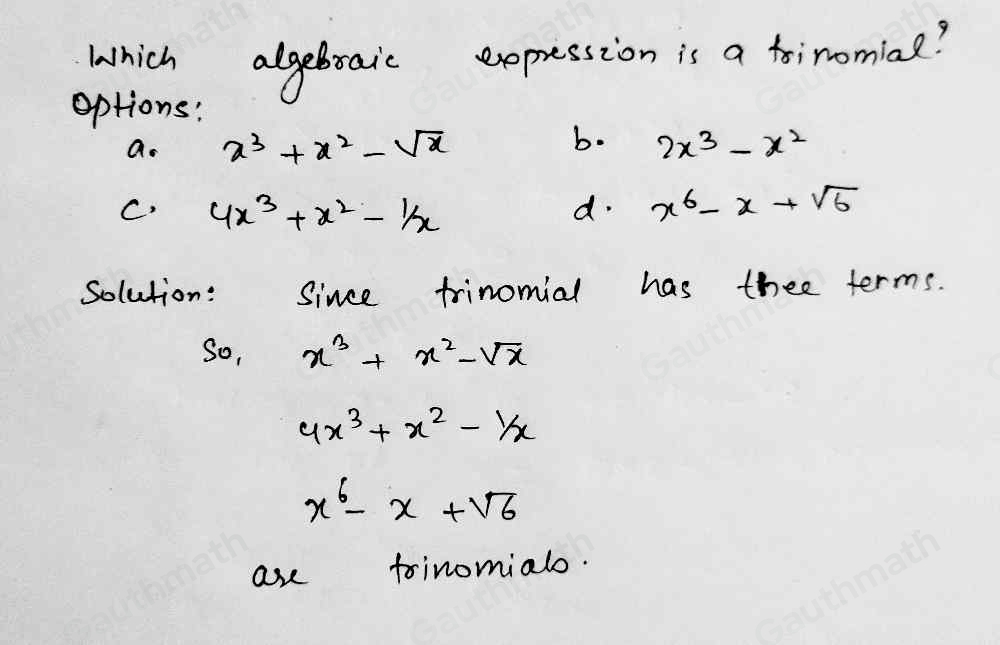 Which algebraic expression is a trinomial?
Options:
a. x³ + x² - √x b. 2x³ - x²
c. 4x³ + x² - 1/x d. x⁶ - x + √6
Solution: Since trinomial has thee terms.
So, x³ + x² - √x
4x³ + x² - 1/x
x⁶ - x + √6
are trinomials.
Gauthmath